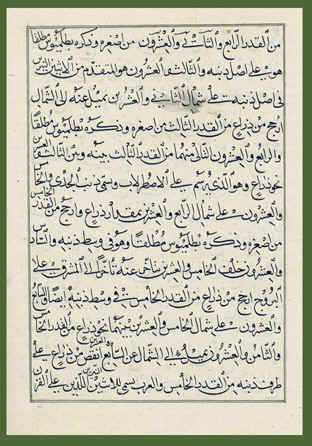 من القدر الرابع والثالث والعشرون من اصغره وذكره بطلميوس مطلقا
هو على اصل ذنبه والثالث والعشرون هو المتقدم من الاثنين
فى اصل ذنبه على شمال الثانى والعشرين يميل عنه الى الشمال
ارجح من ذراع من القدر الثالث من اصغره وذكره بطلميوس مطلقا
والرابع والعشرون التالى منهما من القدر الثالث بينه وبين الثالث
نحو ذراع وهو الذى يرسم على الاصطرلاب ويسمى ذنب الجدى والخامس
والعشرون على شمال الرابع والعشرين بمقدار ذراع وارجح من القدر الخامس
من اصغره وذكره بطلميوس مطلقا وهو فى وسط ذنبه والسادس
والعشرون خلف الخامس والعشرين يتأخر عنه تأخرا الى المشرق على
البروج ارجح من ذراع من القدر الخامس فى وسط ذنبه ايضا والسابع
والعشرون على شمال الخامس والعشرين بينهما نحو ذراع من القدر الخامس
والثامن والعشرون يميل الى الشمال عن السابع انقص من ذراع على
طرف ذنبه من القدر الخامس والعرب تسمى الاثنين اللذين على القرن